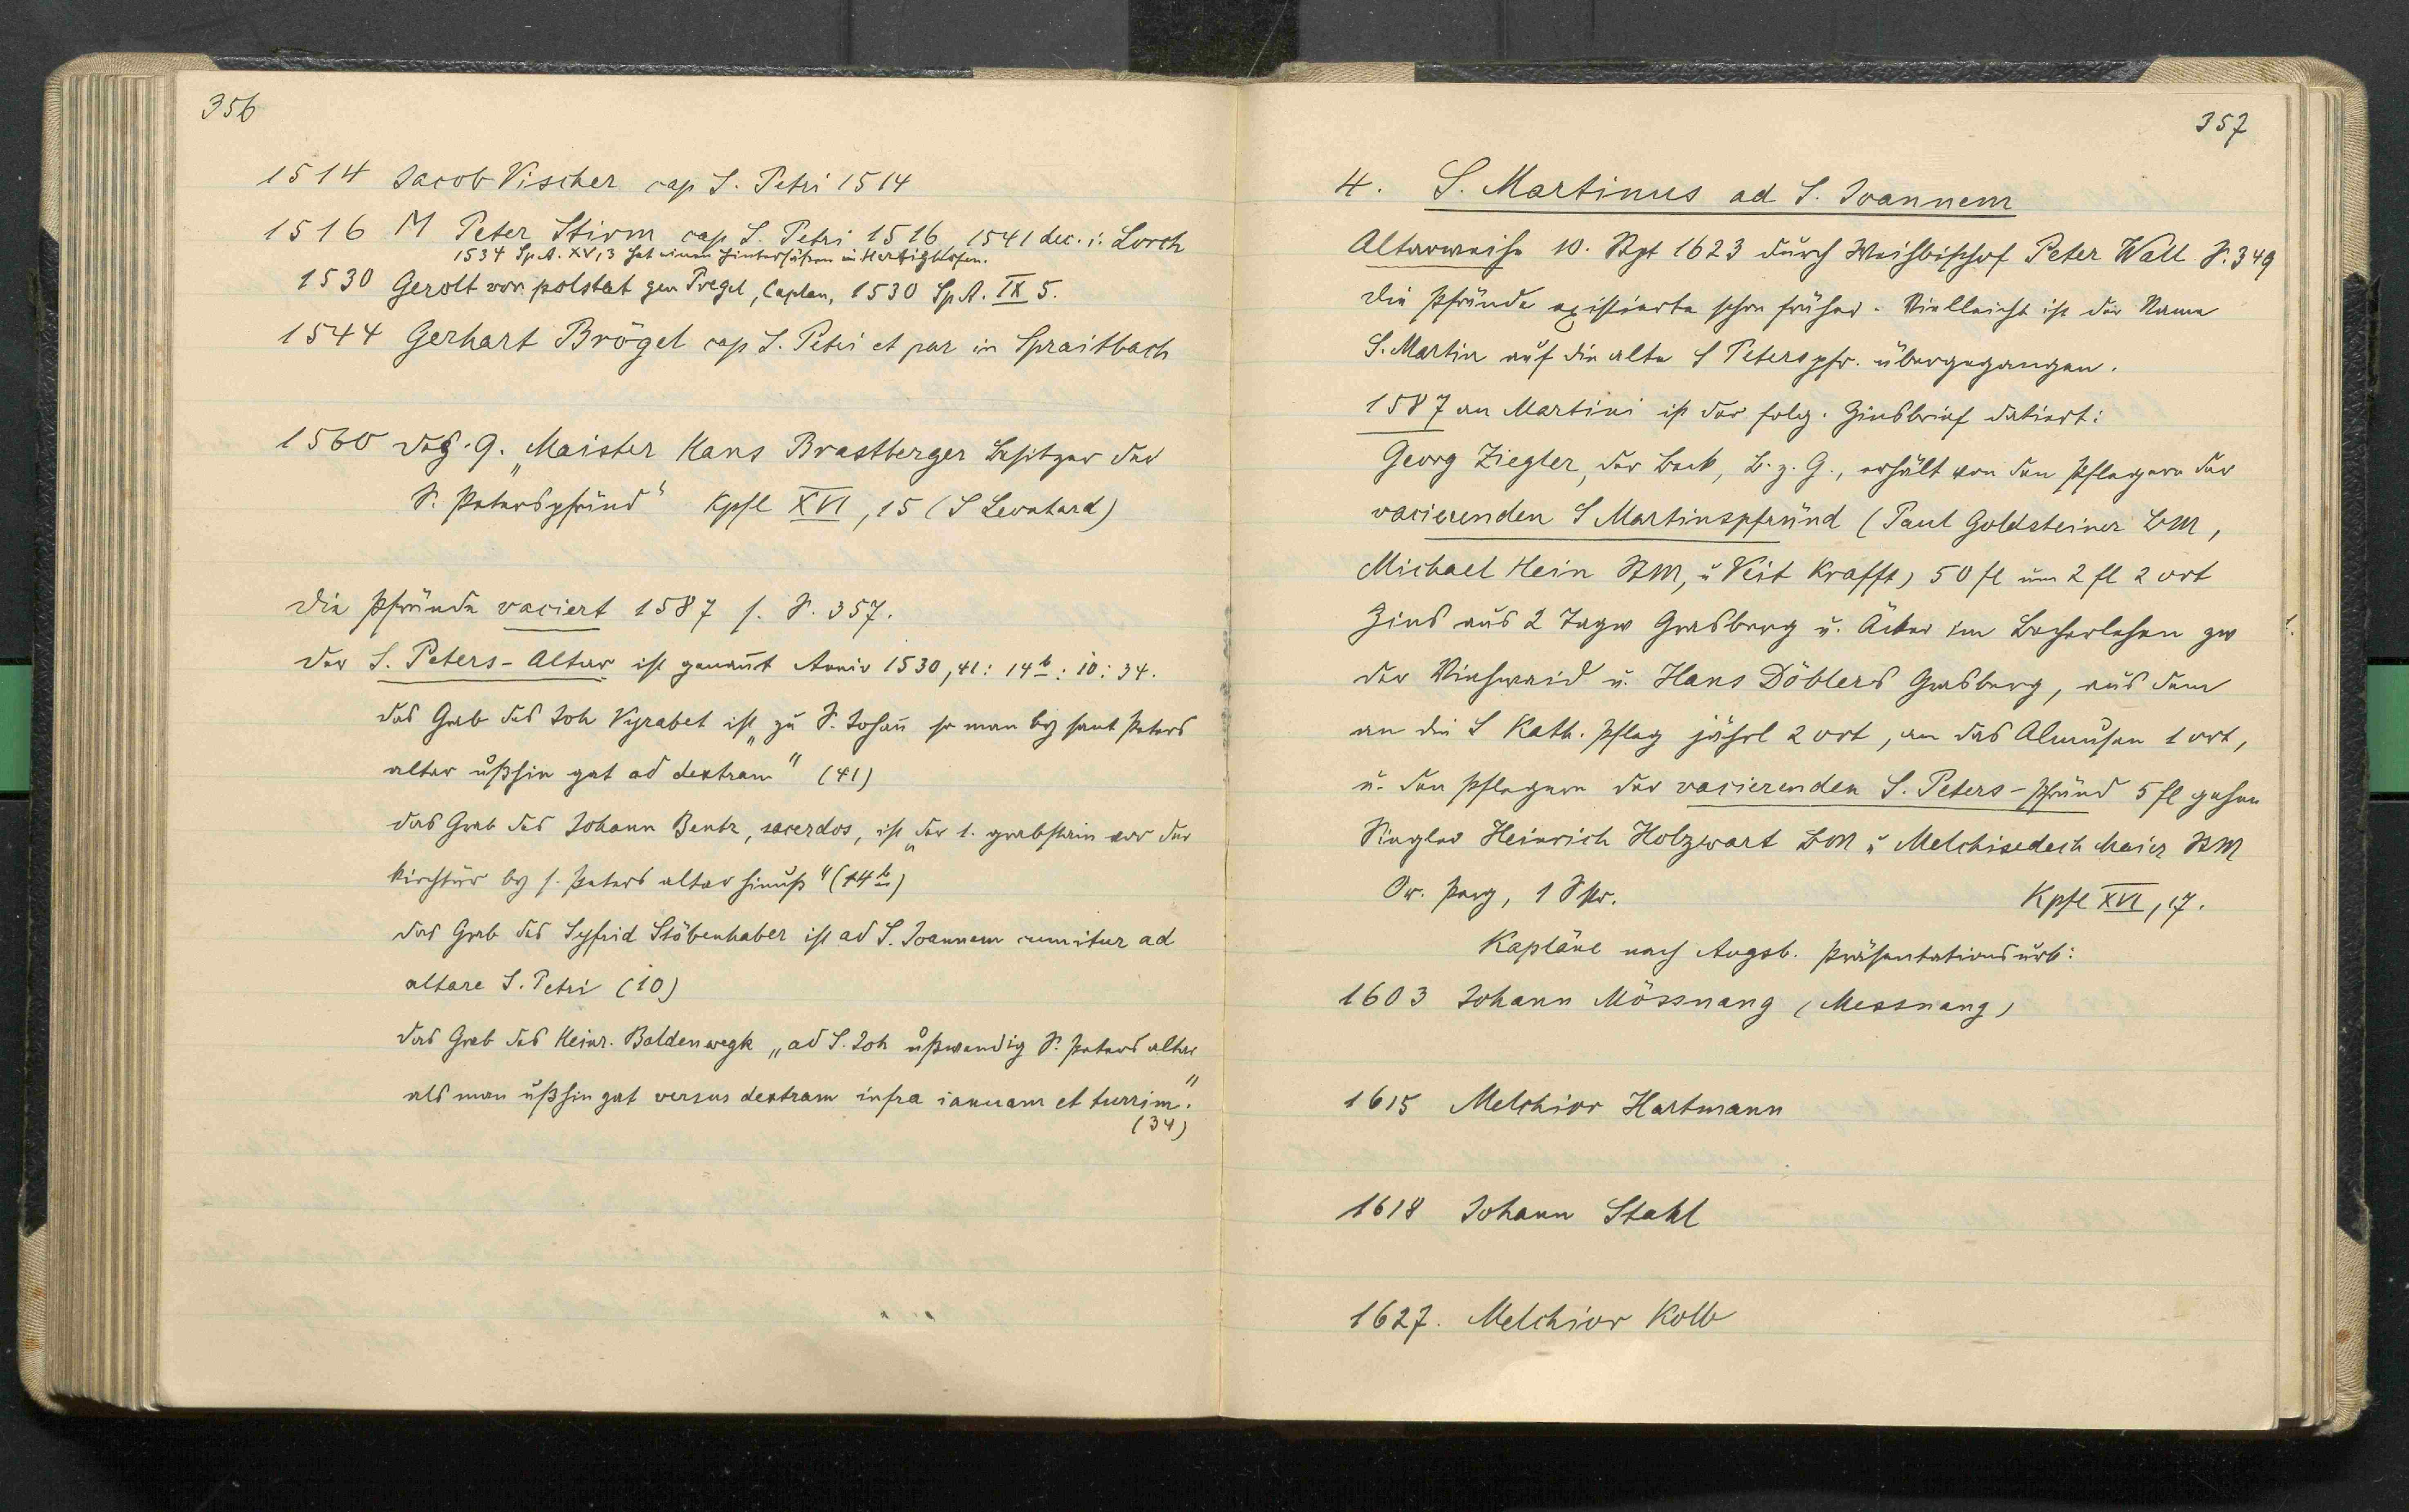 356
1514 Jacob Vischer cap S. Petri 1514
1516 M Peter Stirm cap S. Petri 1516, 1541 dec. i. Lorch
1534 Sp. A. XV, 3 hat einen Hintersäßen in Herlighofen.
1530 Gerolt von polstat gen Pregel, Caplan, 1530 Sp. A. IX 5.
1544 Gerhart Brögel cap S. Petri et par in Spraitbach
1560 "Maister Hans Brastberger Besitzer der
S. Peterspfründ" Kpfl XVI, 15 (S Leonhard)
Die Pfründe vaciert 1587 s. S. 357.
Der S. Peters-Altar ist genannt Anniv 1530, 41: 14b: 10: 34.
das Grab des Joh Vyrabet ist "zu S. Johann so man by sant Peters
altar ußhin gat ad dextram" (41)
das Grab des Johann Bentz, sacerdos, ist "der 1. grabstain vor der
kirchtür by s. Peters altar hinuß" (14b)
das Grab des Syfrid Stöbenhaber ist ad S. Joannem cum itur ad
altare S. Petri (10)
das Grab des Heinr. Baldenwegk "ad S. Joh ußwendig S. Peters altar
als man ußhin gat versus dextram infra ianuam et turrim."
(34)
357
4. S. Martinus ad S. Joannem
Altarweihe 10. Spt 1623 durch Weihbischof Peter Wall S. 349
Die Pfründe existierte schon früher. Vielleicht ist der Name
S. Martin auf die alte S Peterspfr. übergegangen.
1587 an Martini ist der folg. Zinsbrief datiert:
Georg Ziegler, der Beck, B. z. G., erhält von den Pflegern der
vacierenden S Martinspfründ (Paul Goldsteiner BM,
Michael Hein StM, u Veit Krafft) 50 fl um 2 fl 2 ort
Zins aus 2 Tagw Grasberg u. Äcker im Becherlehen zw
der Viehwaid u. Hans Döblers Grasberg, aus dem
an die S Kath. Pfleg jährl 2 ort, an das Almusen 1 ort,
u. den Pflegern der vacierenden S. Peters-Pfründ 5 fl gehen
Siegler Heinrich Holzwart BM u Melchisedech Maier StM
Or. Perg, 1 S
Kpfl XVI, 17.
Kapläne nach Augsb. Präsentationsurk:
1603 Johann Mössnang (Messnang)
1615 Melchior Hartmann
1618 Johann Stahl
1627. Melchior Kolb